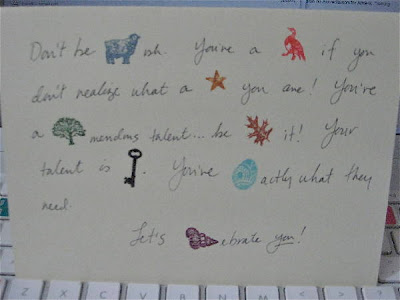 Don't be ish. You're a if you
don't realize what a you are! You're
a mendous talent... be it! Your
talent is . You've actly what they
need.
Let's ebrate you!
Z X C V B N M